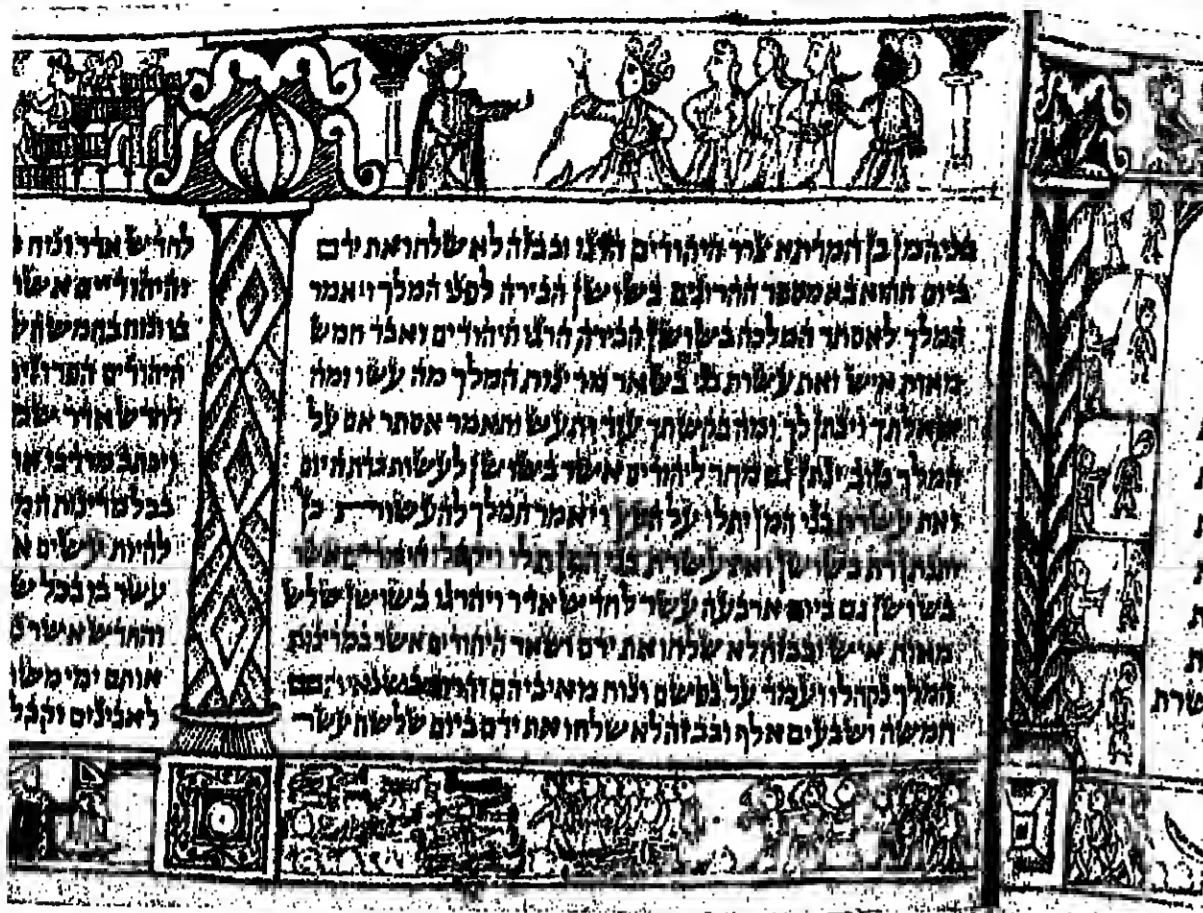 בני המן בן המדתא צרר היהודים הרגו ובבזה לא שלחו את ידם
ביום ההוא בא מספר ההרוגים בשושן הבירה לפני המלך ויאמר
המלך לאסתר המלכה בשושן הבירה הרגו היהודים ואבד חמש
מאות איש ואת עשרת בני בשאר מדינות המלך מה עשו ומה
שאלתך וינתן לך ומה בקשתך עוד ותעש ותאמר אסתר אם על
המלך טוב ינתן גם מחר ליהודים אשר בשושן לעשות כדת היום
ואת עשרת בני המן יתלו על העץ ויאמר המלך להעשות כן
ותנתן דת בשושן ואת עשרת בני המן תלו ויקהלו היהודים אשר
בשושן גם ביום ארבעה עשר לחדש אדר ויהרגו בשושן שלש
מאות איש ובבזה לא שלחו את ידם ושאר היהודים אשר במדינות
המלך נקהלו ועמד על נפשם ונוח מאיביהם והרג בשנאיהם
חמשה ושבעים אלף ובבזה לא שלחו את ידם ביום שלשה עשר
לחדש אדר ונוח
והיהודיים אשר
בו ונוח בחמשה
היהודים
לחדש אדר
ויכתב מרדכי
בכל מדינות
להיות עשים
עשר בו בכל
והחדש אשר
אותם ימי
לאבינים וקבל